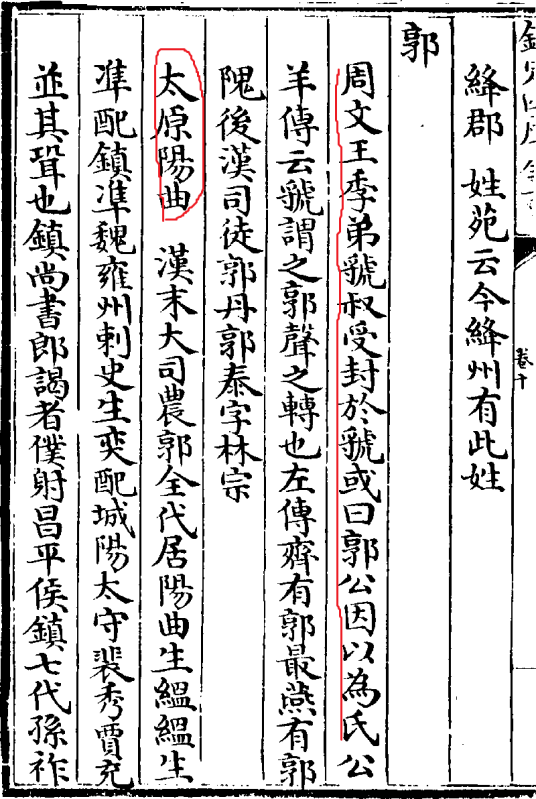 絳郡 姓苑云今絳州有此姓
郭
周文王季弟虢叔受封於虢或曰郭公因以為氏公
羊傳云虢謂之郭聲之轉也左傳齊有郭最燕有郭
隗後漢司徒郭丹郭泰字林宗
太原陽曲 漢末大司農郭全代居陽曲生縕縕生
凖配鎮凖魏雍州刺史生奕配城陽太守裴秀賈充
並其壻也鎮尚書郎謁者僕射昌平侯鎮七代孫祚
卷十